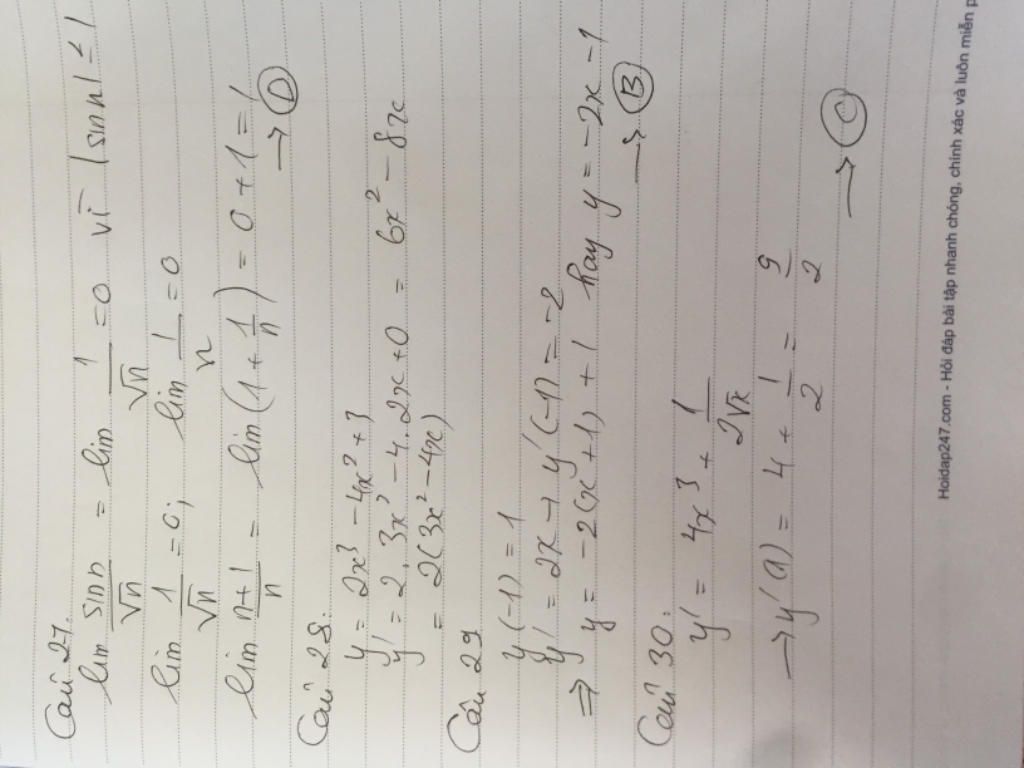 Câu 27.
lim sinn/√n = lim 1/√n = 0 vì |sinn| ≤ 1
lim 1/√n = 0; lim 1/n = 0
lim n+1/n = lim (1 + 1/n) = 0 + 1 = 1
→ D
Câu 28:
y = 2x³ - 4x² + 3
y' = 2.3x² - 4.2x + 0 = 6x² - 8x
= 2(3x² - 4x)
Câu 29
y(-1) = 1
y' = 2x → y'(-1) = -2
⇒ y = -2(x + 1) + 1 hay y = -2x - 1
→ B
Câu 30:
y' = 4x³ + 1/2√x
→ y'(1) = 4 + 1/2 = 9/2
→ C
Hoidap247.com - Hỏi đáp bài tập nhanh chóng, chính xác và luôn miễn p